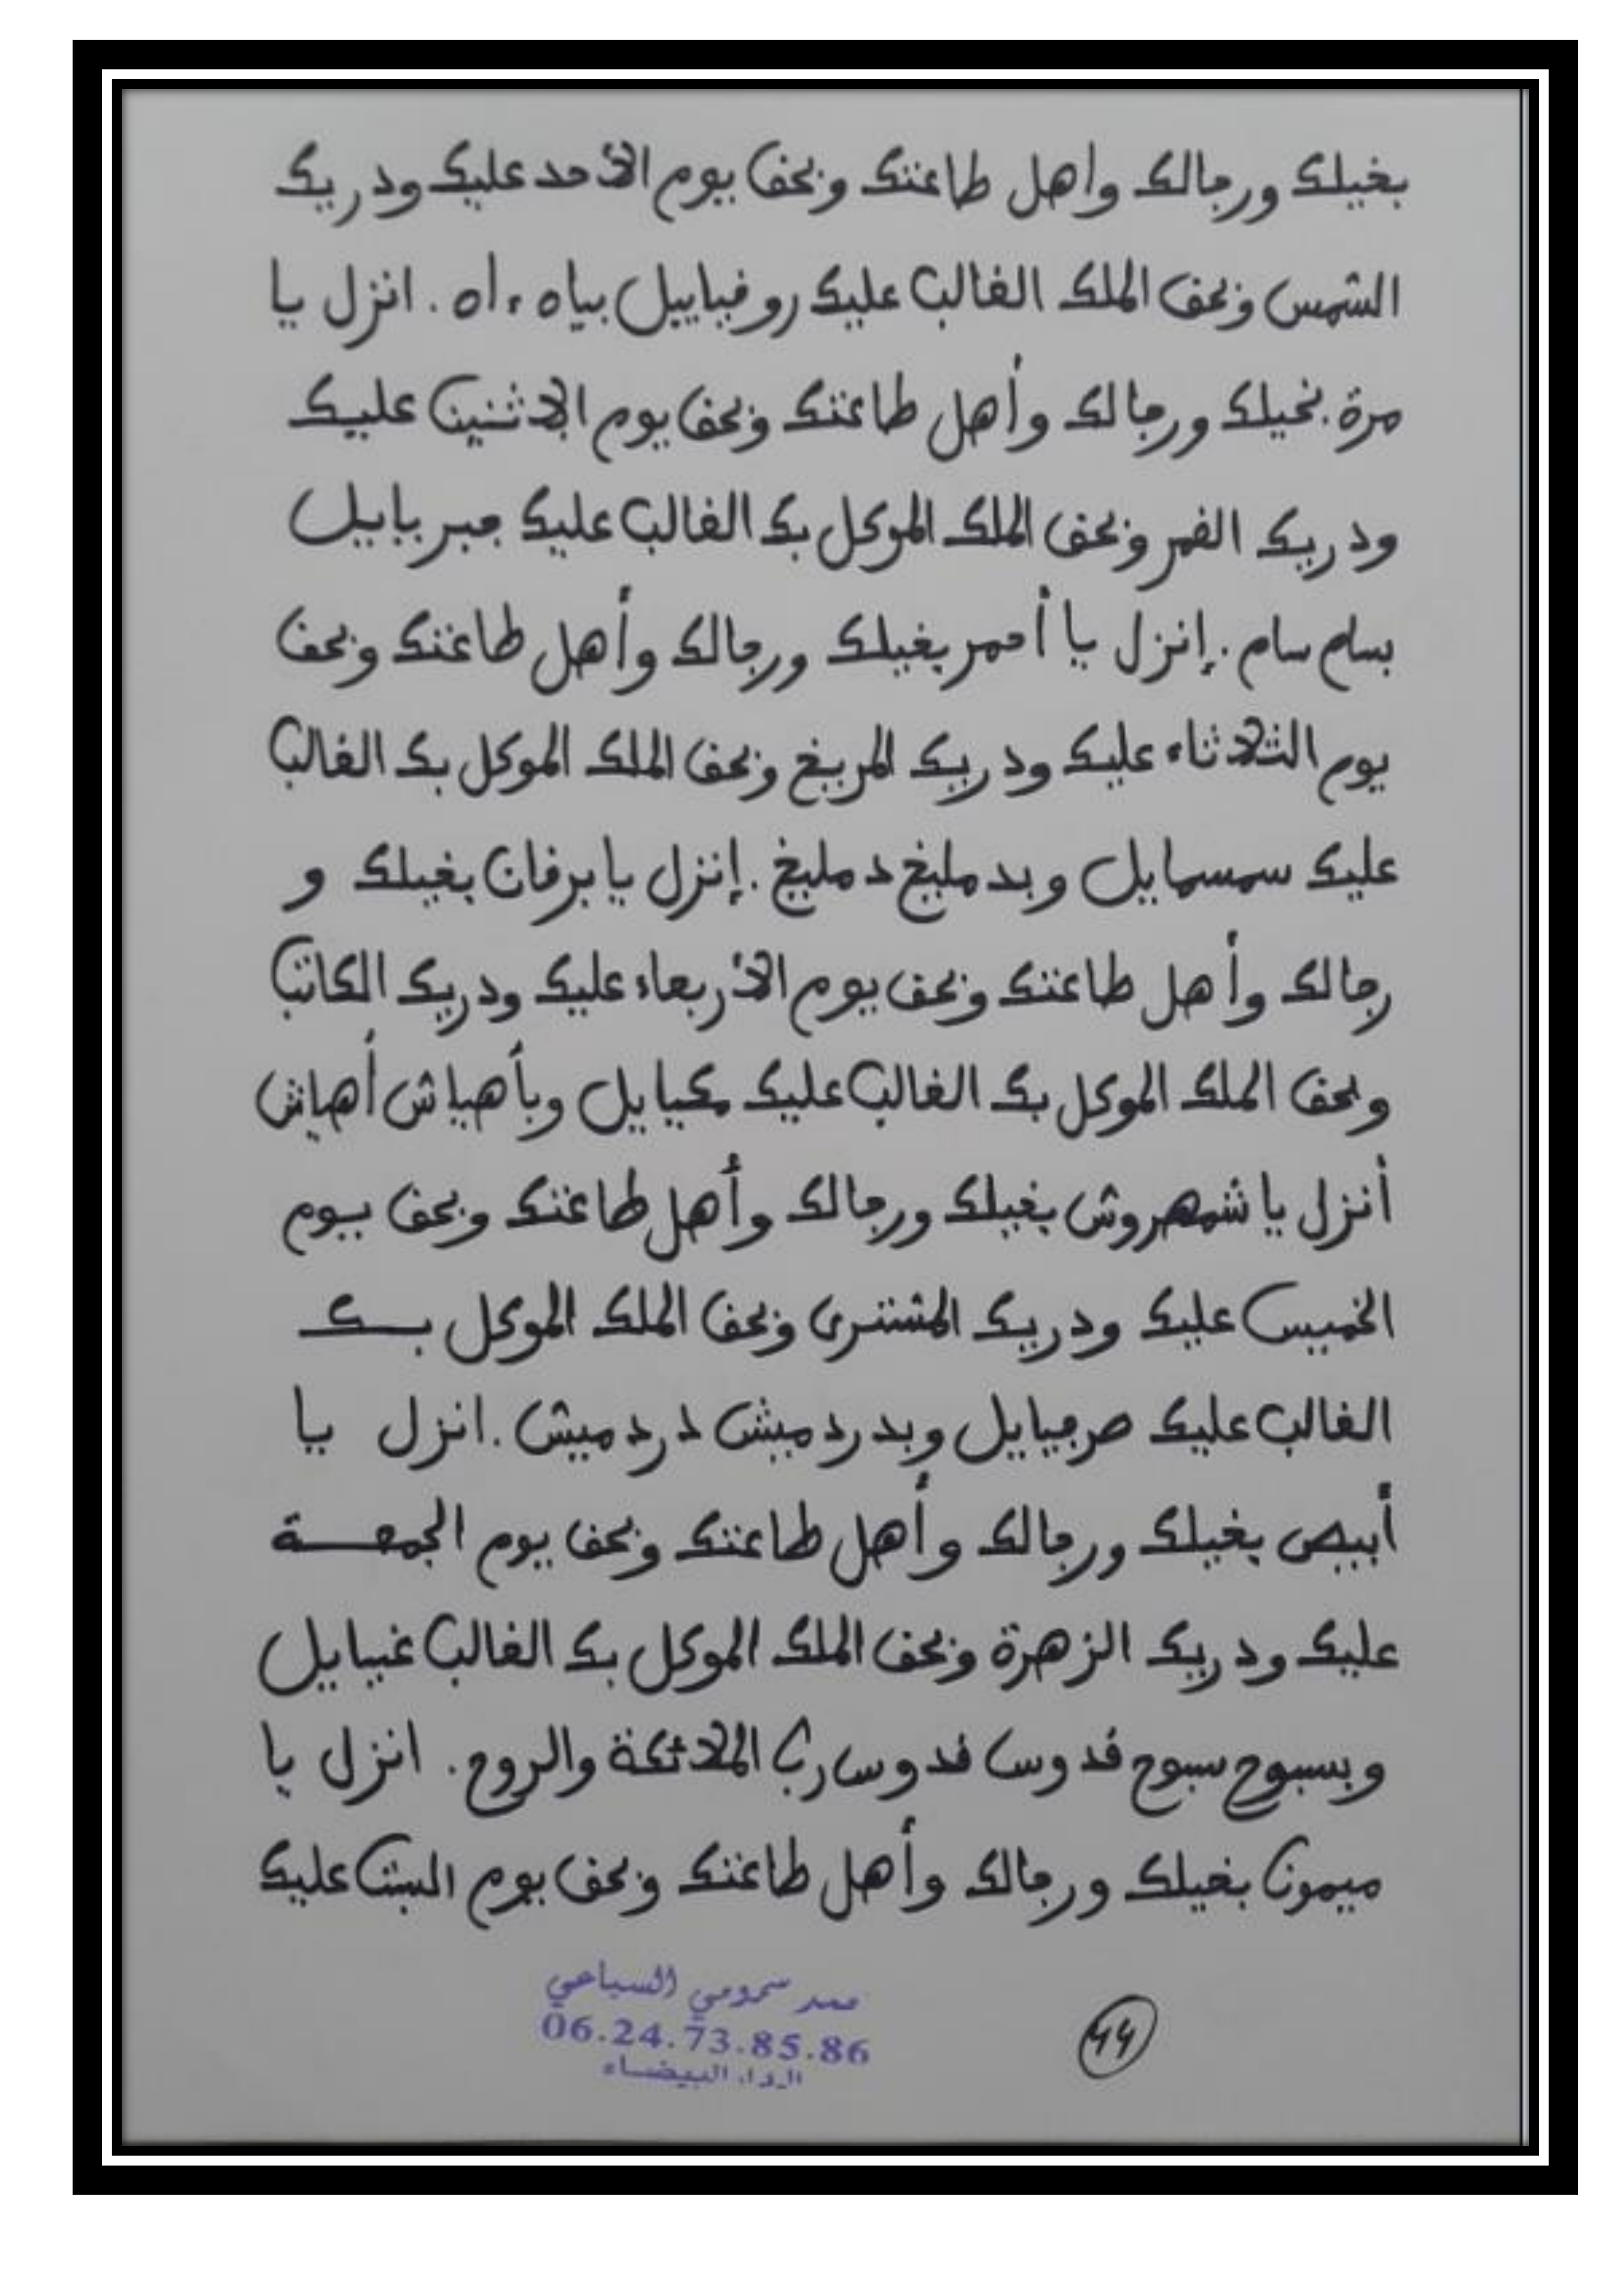 بخيلك ورجالك واهل طاعتك وبحق يوم الأحد عليك ودريك
الشمس وبحق الملك الغالب عليك روفياييل بياه ءاه. انزل يا
مرة بخيلك ورجالك وأهل طاعتك وبحق يوم الاثنين عليك
ودريك القمر وبحق الملك الموكل بك الغالب عليك جبريابيل
بسام سام. إنزل يا أحمر بخيلك ورجالك وأهل طاعتك وبحق
يوم الثلاثاء عليك ودريك المريخ وبحق الملك الموكل بك الغالب
عليك سمسمايل وبدمليخ دمليخ. إنزل يا برقان بخيلك و
رجالك وأهل طاعتك وبحق يوم الأربعاء عليك ودريك الكاتب
وبحق الملك الموكل بك الغالب عليك مكيايل وبأهياش أهياش
أنزل يا شمهروش بخيلك ورجالك وأهل طاعتك وبحق يوم
الخميس عليك ودريك المشترى وبحق الملك الموكل بك
الغالب عليك صرفيايل وبدردميش دردميش. انزل يا
أبيض بخيلك ورجالك وأهل طاعتك وبحق يوم الجمعة
عليك ودريك الزهرة وبحق الملك الموكل بك الغالب عنيايل
وبسبوح سبوح قدوس قدوس رب الملائكة والروح. انزل يا
ميمون بخيلك ورجالك وأهل طاعتك وبحق يوم السبت عليك
السباعي
06.24.73.85.86
الدار البيضاء
44